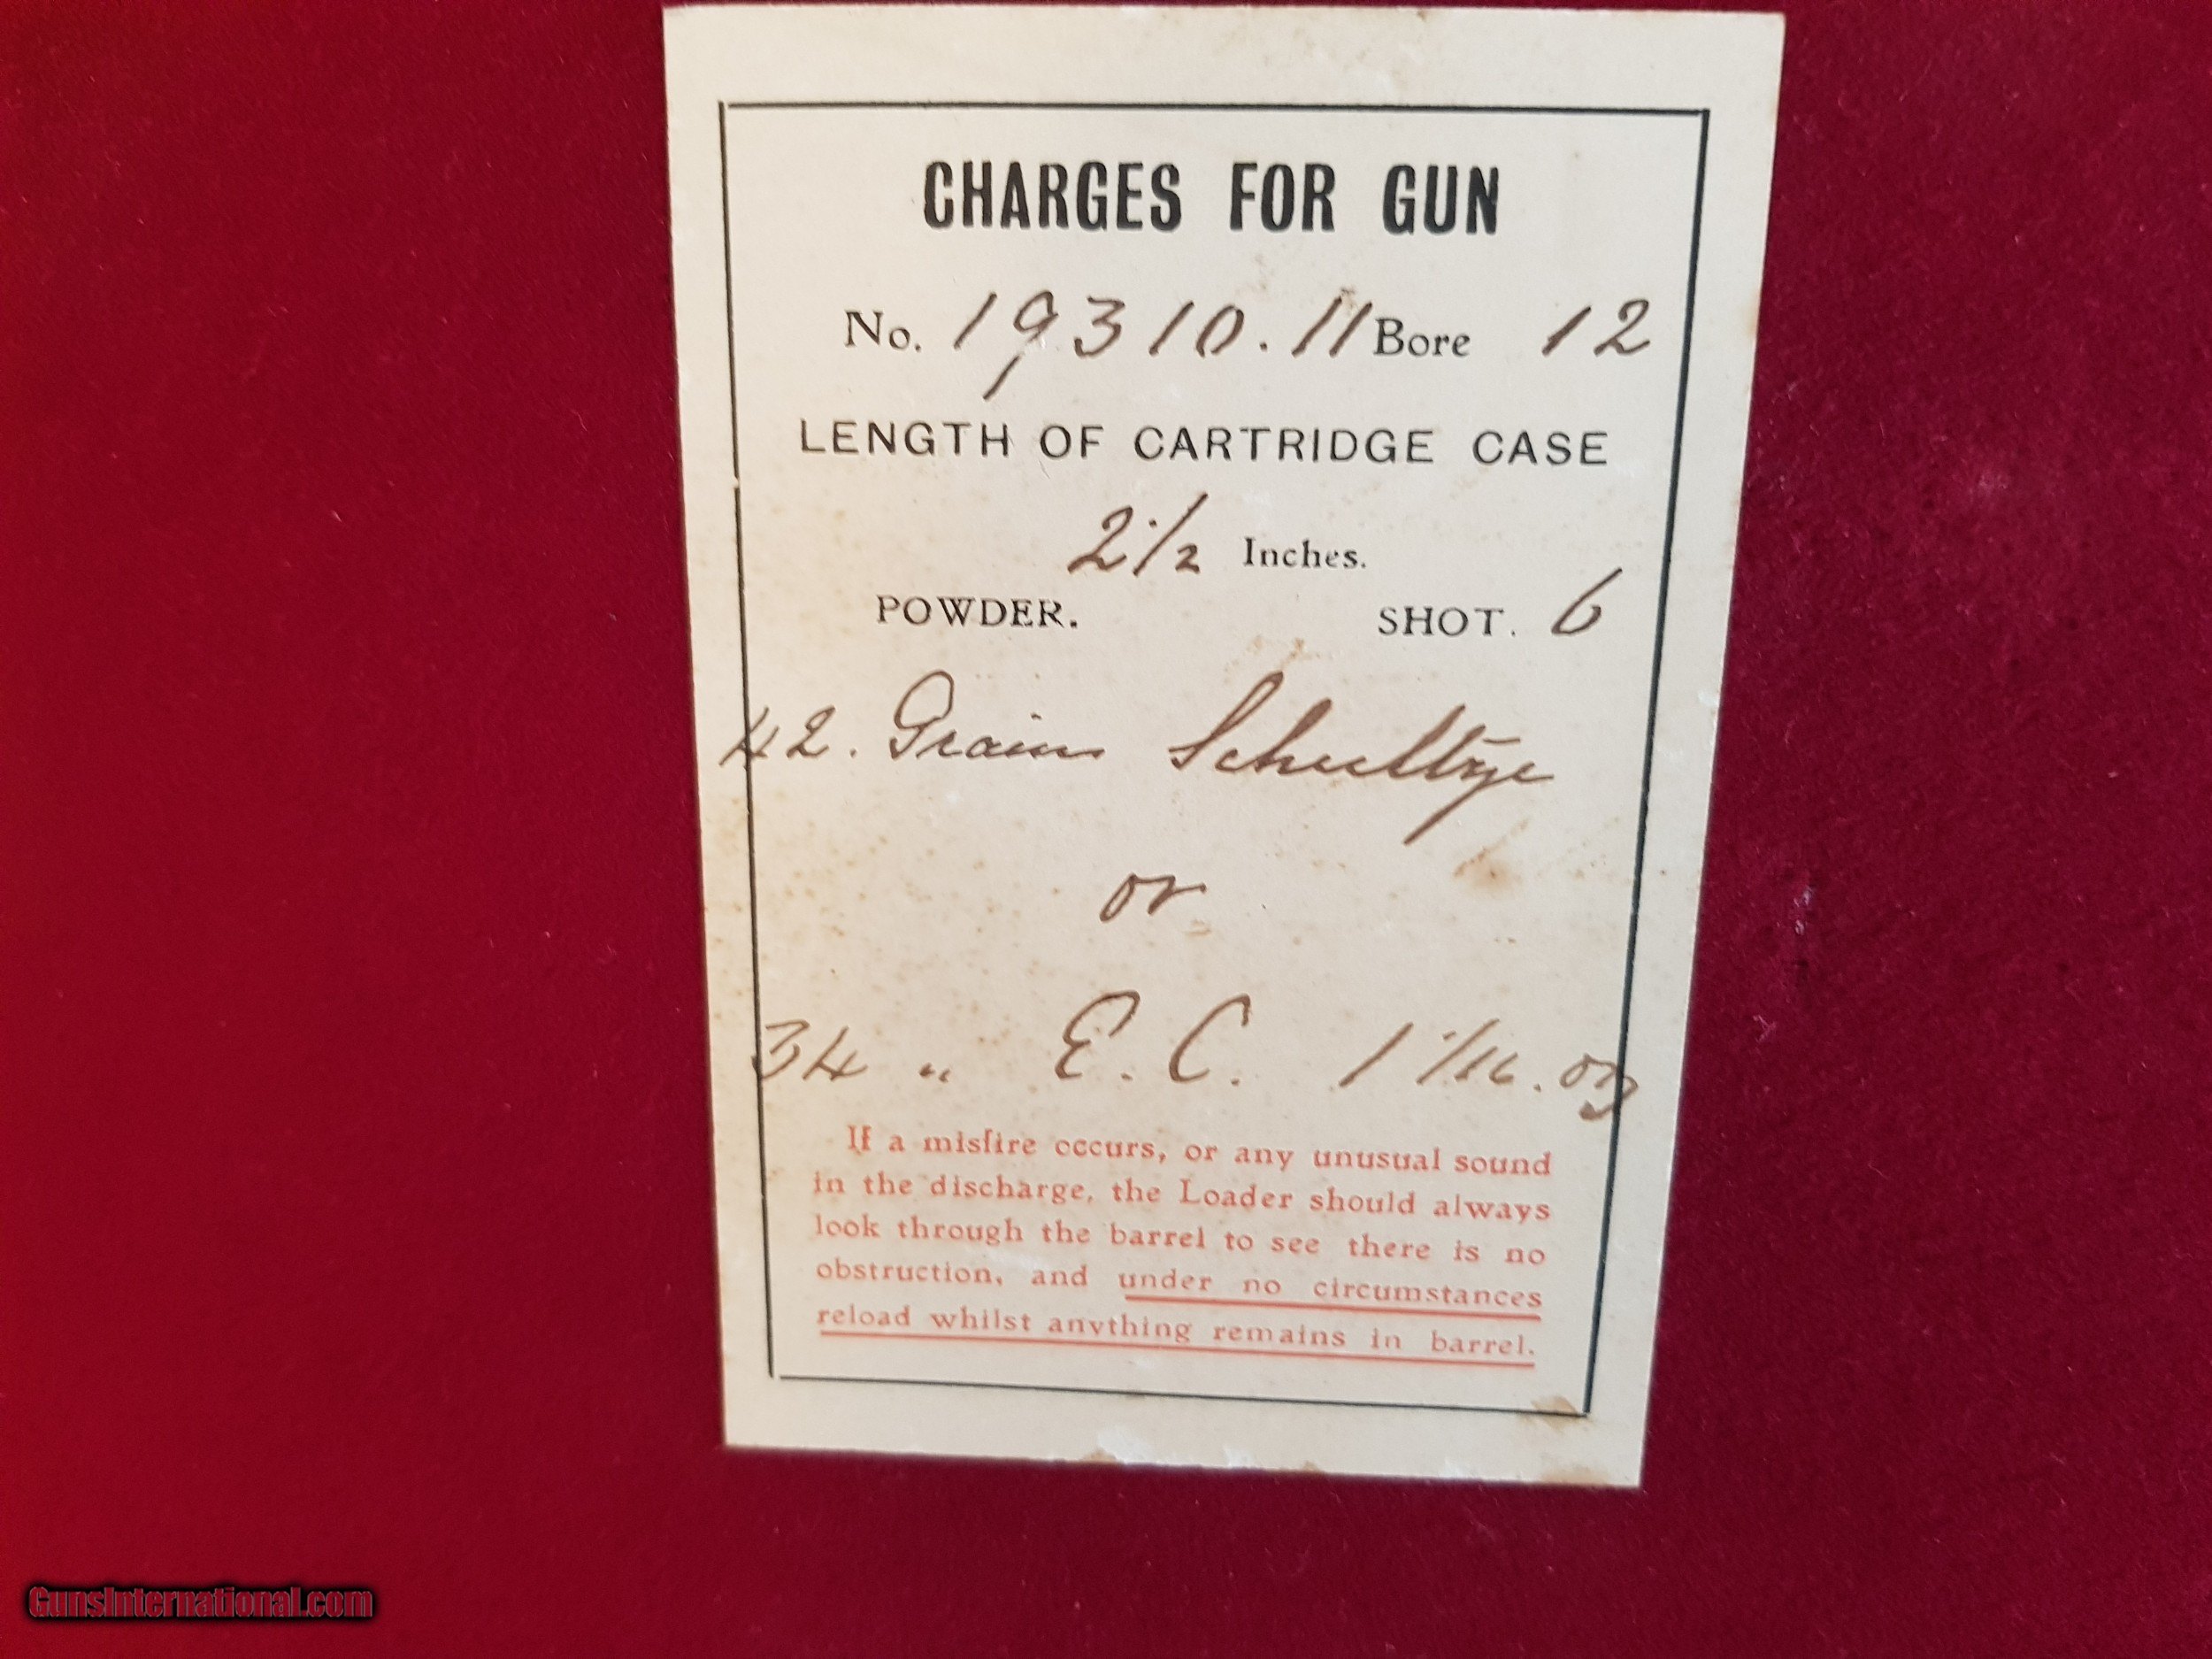 CHARGES FOR GUN
No. 19310.11 Bore 12
LENGTH OF CARTRIDGE CASE
2 1/2 Inches.
POWDER. SHOT. 6
42. Grains Schultze
or
34 " E. C. 1 1/16. oz
If a misfire occurs, or any unusual sound
in the discharge, the Loader should always
look through the barrel to see there is no
obstruction, and under no circumstances
reload whilst anything remains in barrel.
GunsInternational.com